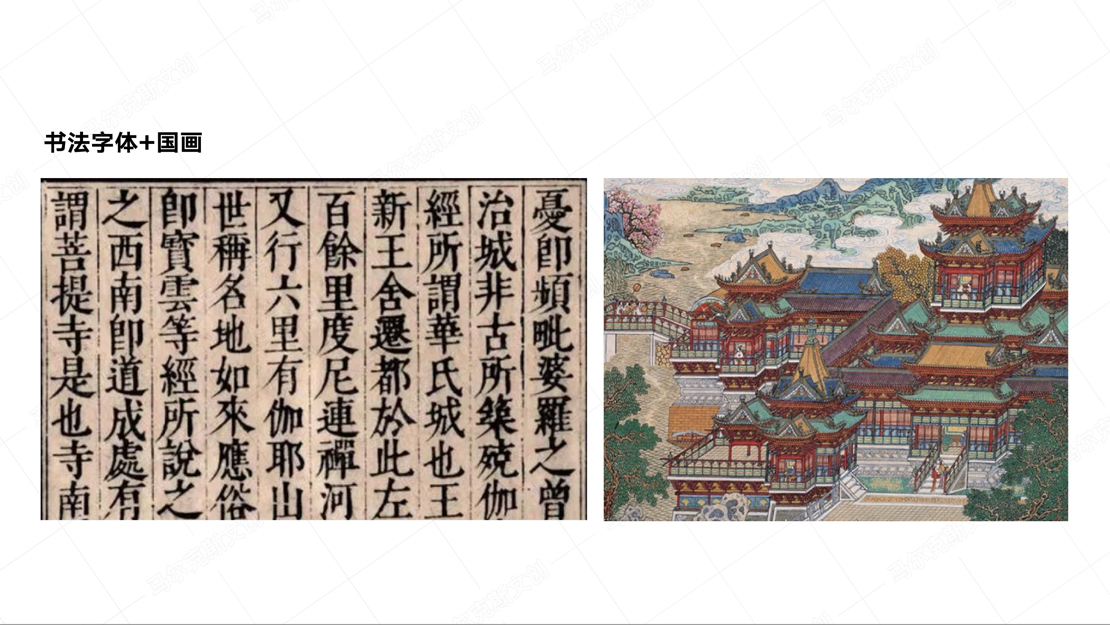 书法字体+国画
憂卽頻毗婆羅之曾
治城非古所築殑伽
經所謂華氏城也王
新王舍遷都於此左
百餘里度尼連禪河
又行六里有伽耶山
世稱名地如來應俗
卽寶雲等經所說之
之西南卽道成處有
謂菩提寺是也寺南